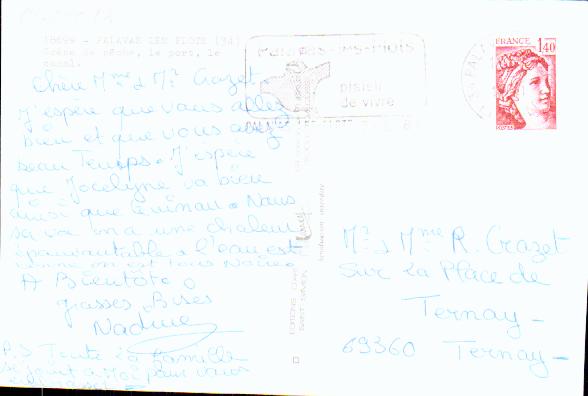 18699 - PALAVAS LES FLOTS (34)
Scène de pêche, le port, le
canal.
Chère Mme & Mr Crozet
J'espère que vous allez
bien et que vous avez
beau Temps. J'espère
que Jocelyne va bien
ainsi que
Nous
sa va on a une chaleur
épouvantable l'eau est
bonne on est tous
A Bientôt
grosses Bises
Nadine
P.S Toute la famille
se joint a Moi pour vous
Palavas-les-Flots
plaisir
de vivre
FRANCE
1,40
POSTES
EDITIONS
Mr & Mme R. Crozet
Sur la Place de
Ternay -
69360 Ternay -